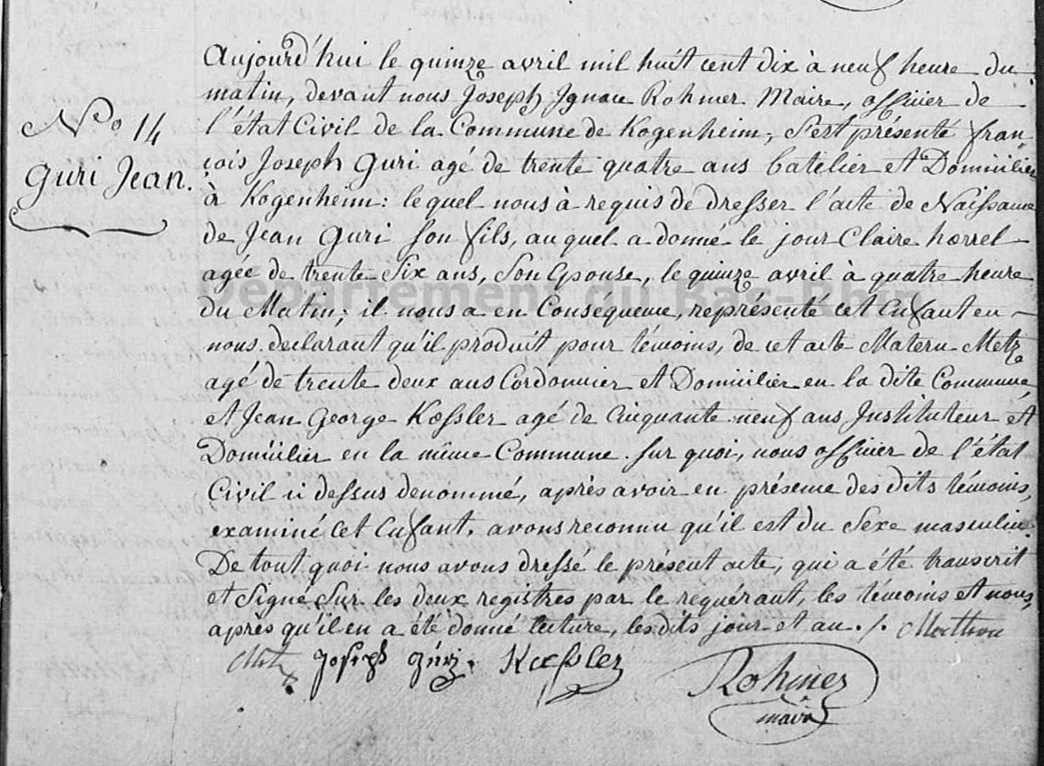 Aujourd'hui le quinze avril mil huit cent dix à neuf heure du
matin, devant nous Joseph Ignace Rohmer Maire, officier de
N.o 14
l'état Civil de la Commune de Kogenheim, s'est présenté fran-
çois Joseph Guri agé de trente quatre ans batelier et Domicilié
Guri Jean.
à Kogenheim: lequel nous à requis de dresser l'acte de Naissance
de Jean Guri son fils, auquel a donné le jour Claire hœrrel
agée de trente Six ans, Son Epouse, le quinze avril à quatre heure
Département du Bas-Rhin
du Matin; il nous a en Consequence, représenté cet Enfant en
nous declarant qu'il produit pour témoins, de cet acte Matern Metz
agé de trente deux ans Cordonnier et Domicilier en la dite Commune
et Jean George Kœssler agé de Cinquante neuf ans Instituteur et
Domicilier en la même Commune. Sur quoi, nous officier de l'état
Civil ci dessus denommé, après avoir en présence des dits témoins,
examiné cet Enfant, avons reconnu qu'il est du Sexe masculin.
De tout quoi nous avons dressé le présent acte, qui a été transcrit
et Signé Sur les deux registres par le requérant, les témoins et nous,
après qu'il en a été donné lecture, lesdits jour et an ./.
Metz Joseph Guri. Kœssler
Rohmer
maire